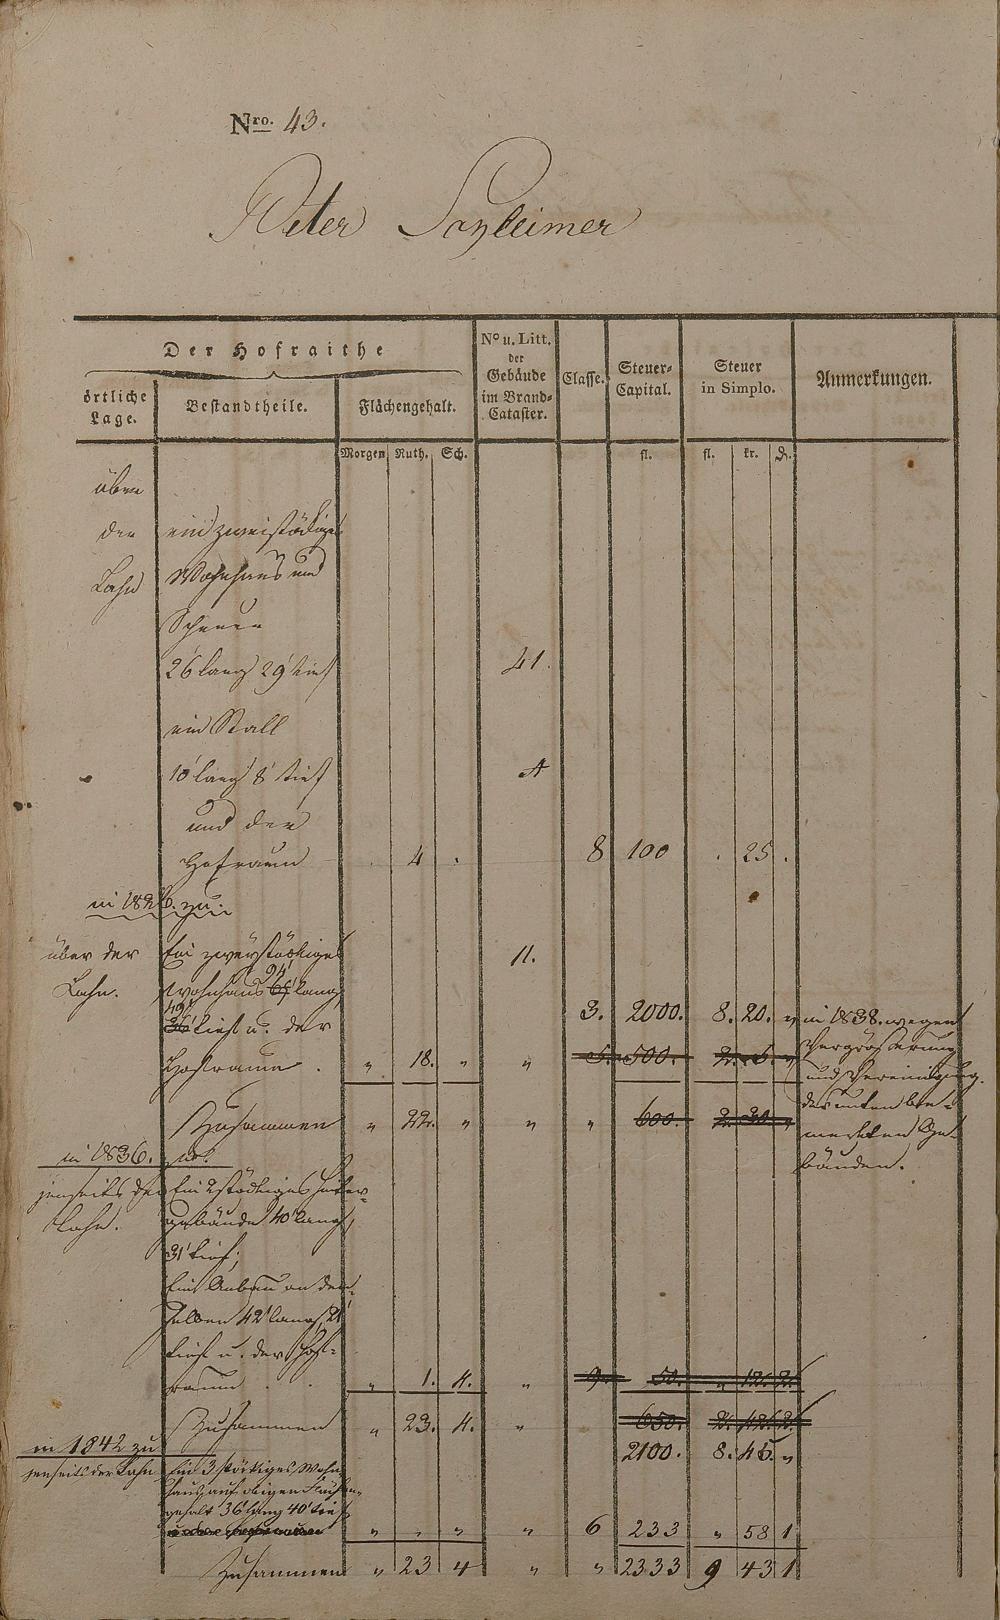 Nro. 43.
Peter
Der Hofraithe
örtliche Lage.
Bestandtheile.
Flächengehalt.
No u. Litt. der Gebäude im Brand-Cataster.
Classe.
Steuer-Capital.
Steuer in Simplo.
Anmerkungen.
Morgen Ruth. Sch. fl. fl. kr. d.
über
der ein zweistöckiges
Lahn Wohnhaus und
Scheuer
26' lang 29' tief 41.
ein Stall
10' lang 8' tief A
und der
Hofraum 4 . 8 100 . 25 .
in 1826. zu:
über der Ein zweystöckiges 11.
Lahn. Wohnhaus 94' 65' lang
49' 36' tief u. der 3. 2000. 8. 20. " in 1838. wegen
Hofraum . " 18. " " 5. 500. 2. 5. " Vergrösserung
und Vereinigung
Zusammen " 22. " " " 600. 2. 30. " der unten be-
merkten Ge-
bäuden.
in 1836.
jenseits der Ein 2stöckiges Hinter-
Lahn. gebäude 40' lang,
31' tief;
Ein Anbau an dem-
selben 42' lang, 21'
tief u. der Hof-
raum . . " 1. 4. " 9. 50. " 12. 2.
Zusammen " 23. 4. " 650. 2. 42. 2.
2100. 8. 45. "
in 1842 zu
jenseits der Lahn Ein 3 stöckiges Wohn-
haus auf obigen Flächen-
gehalt 36' lang 40' tief
" " " " 6 233 " 58 1
Zusammen " 23 4 " " 2333 9 43 1